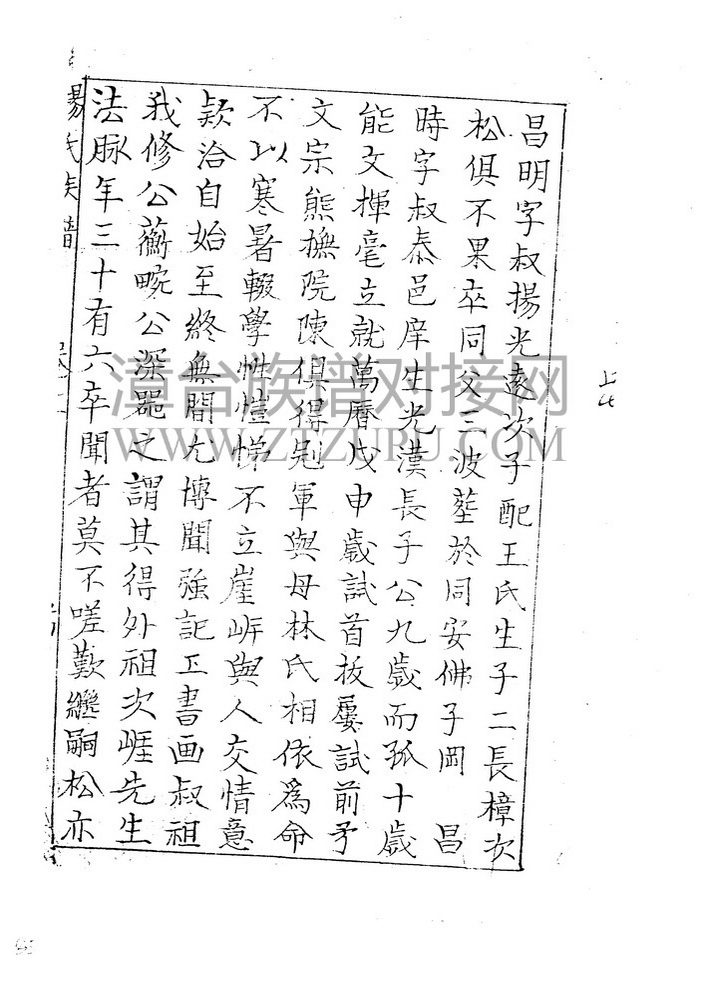 昌明字叔揚光遠次子配王氏生子二長樟次
松俱不果卒同父三波塟於同安佛子岡 昌
時字叔泰邑庠生光漢長子公九歲而孤十歲
能文揮毫立就萬曆戊申歲試首拔屢試前矛
文宗熊撫院陳俱得別軍與母林氏相依為命
不以寒暑輟學性愷悌不立崖岸與人交情意
款洽自始至終無間尤博聞強記工書画叔祖
我修公蘅畹公深器之謂其得外祖次崕先生
法脉年三十有六卒聞者莫不嗟歎繼嗣松亦
楊氏族譜
漳台族谱对接网
WWW.ZTZUPU.COM